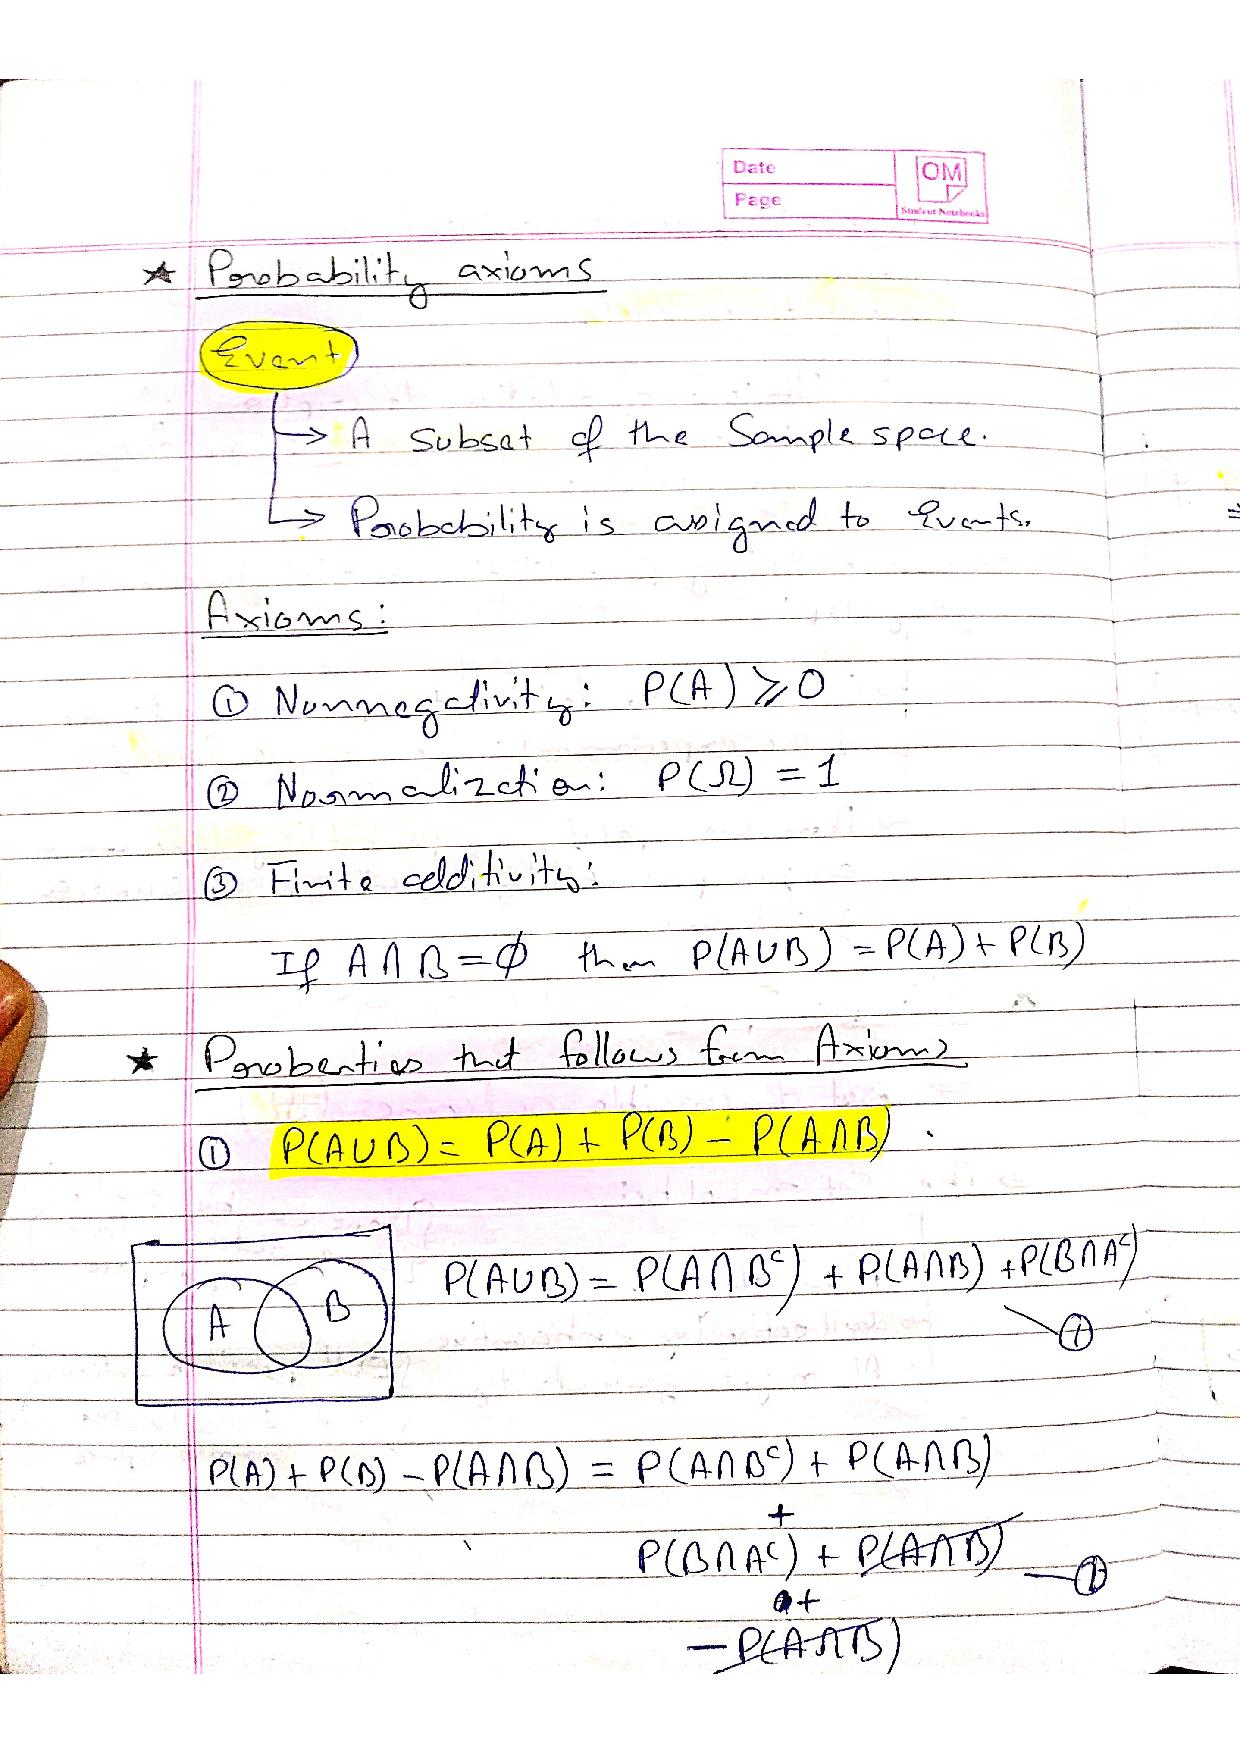 Date
OM
Page
Student Notebooks
★ Probability axioms
Event
→ A subset of the Sample space.
→ Probability is assigned to Events.
Axioms:
① Nonnegativity: P(A) ⩾ 0
② Normalization: P(Ω) = 1
③ Finite additivity:
If A∩B = ϕ then P(A∪B) = P(A) + P(B)
★ Properties that follows from Axioms
① P(A∪B) = P(A) + P(B) − P(A∩B).
P(A∪B) = P(A∩Bᶜ) + P(A∩B) + P(B∩Aᶜ)
A B
①
P(A) + P(B) − P(A∩B) = P(A∩Bᶜ) + P(A∩B)
+
P(B∩Aᶜ) + P(A∩B)
+
− P(A∩B)